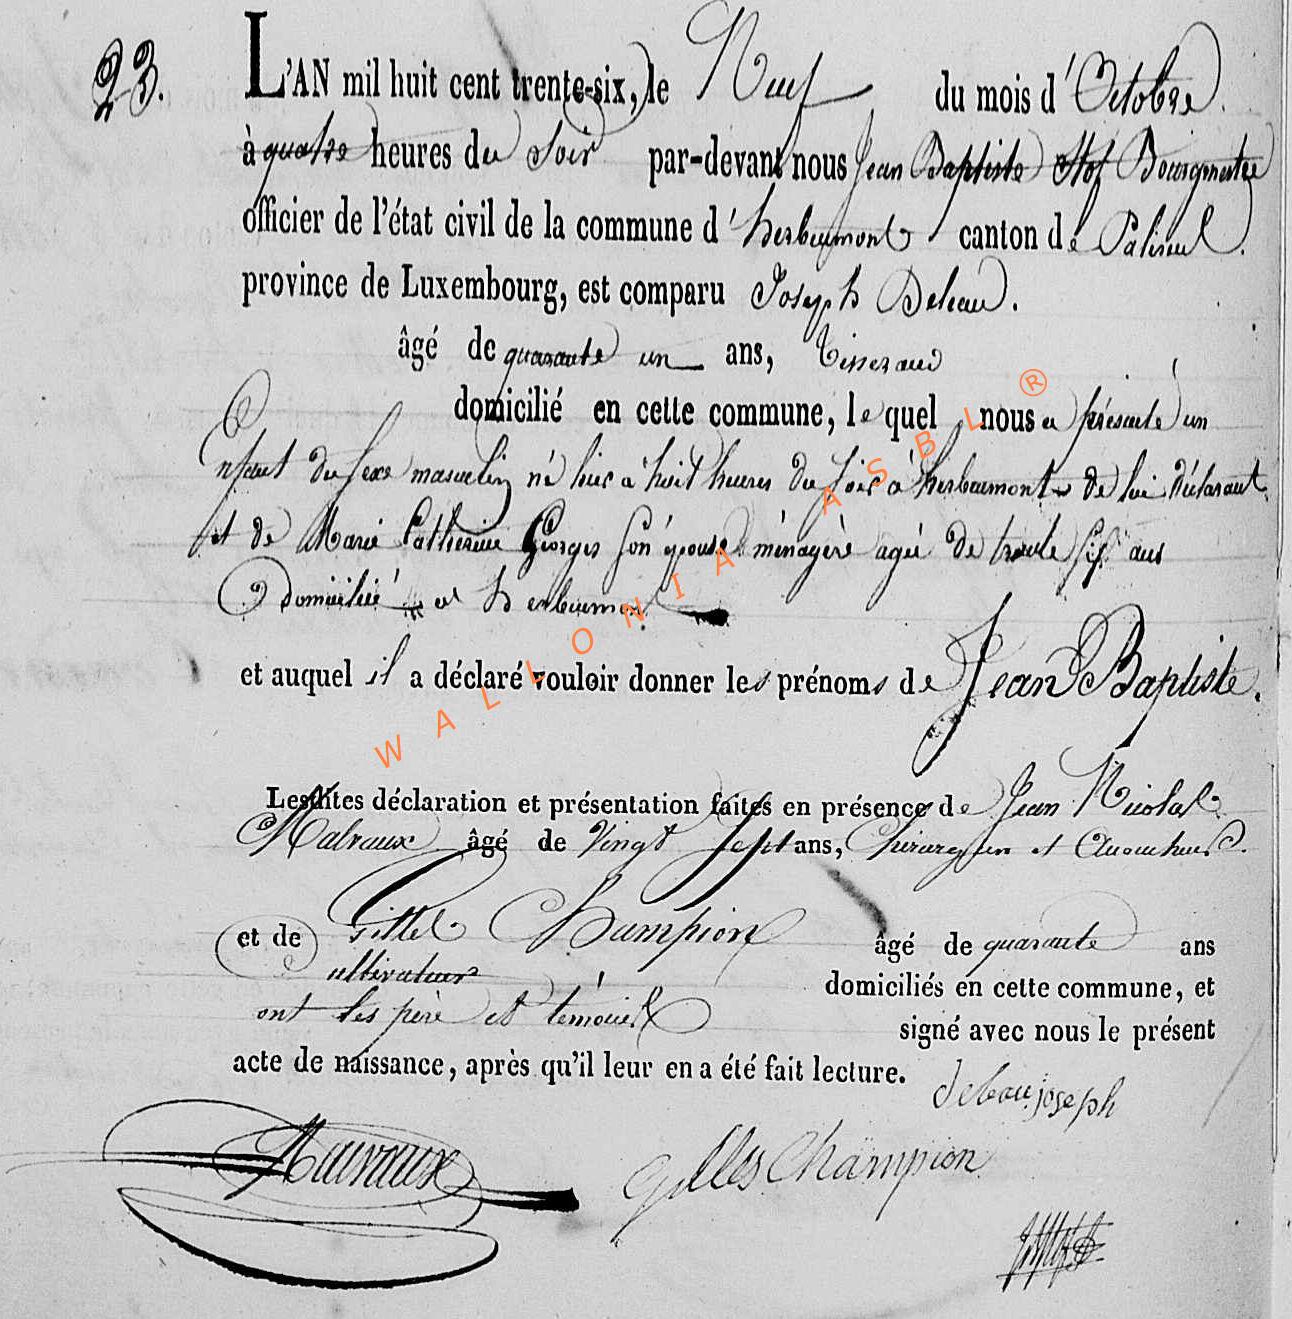 23.
L'AN mil huit cent trente-six, le Neuf du mois d'Octobre
à quatre heures du Soir par-devant nous Jean Baptiste Stof Bourgmestre
officier de l'état civil de la commune d'herbeumont canton de Paliseul.
province de Luxembourg, est comparu Joseph Beleau.
âgé de quarante un ans, tisserand
domicilié en cette commune, lequel nous a présenté un
Enfant du sexe masculin né hier à huit heures du soir à herbeumont de lui déclarant
et de Marie Catherine Georges son épouse ménagère agée de trente six ans
Domiciliée a herbeumont
et auquel il a déclaré vouloir donner les prénoms de Jean Baptiste.
Lesdites déclaration et présentation faites en présence de Jean Nicolas
Malvaux âgé de Vingt Sept ans, Chirurgien et Accoucheur.
et de Champion âgé de quarante ans
cultivateur domiciliés en cette commune, et
ont les père et témoins signé avec nous le présent
acte de naissance, après qu'il leur en a été fait lecture.
debeau joseph
Gilles Champion
WALLONIA ASBL ®